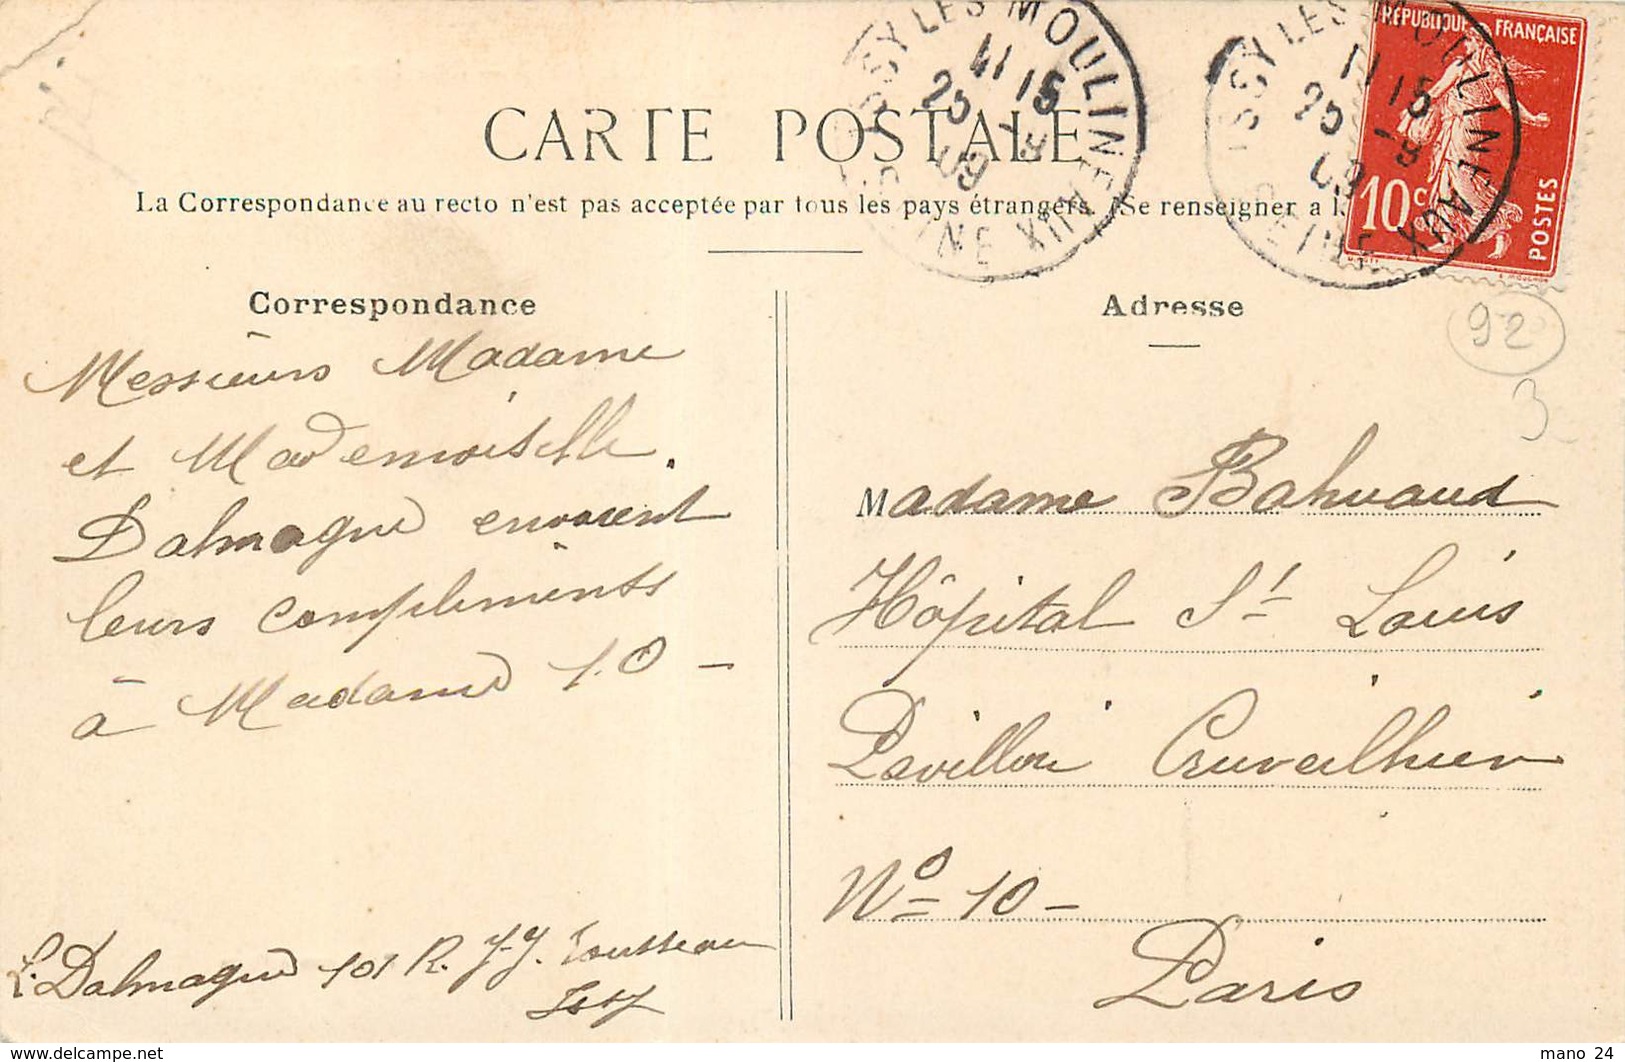 CARTE POSTALE
La Correspondance au recto n'est pas acceptée par tous les pays étrangers. (Se renseigner a l
ISSY LES MOULINEAUX
11 15
25 - 8
09
SEINE
ISSY LES MOULINEAUX
11 15
25 - 8
09
SEINE
RÉPUBLIQUE FRANÇAISE
10 c
POSTES
Correspondance
Messieurs Madame
et Mademoiselle
Dalmagne envoient
leurs compliments
à Madame 10 -
L. Dalmagne 101 R. J.J. Rousseau
Issy
Adresse
92
3
Madame Bahuaud
Hôpital St Louis
Pavillon Cruveilhier
No 10 -
Paris
www.delcampe.net
mano 24